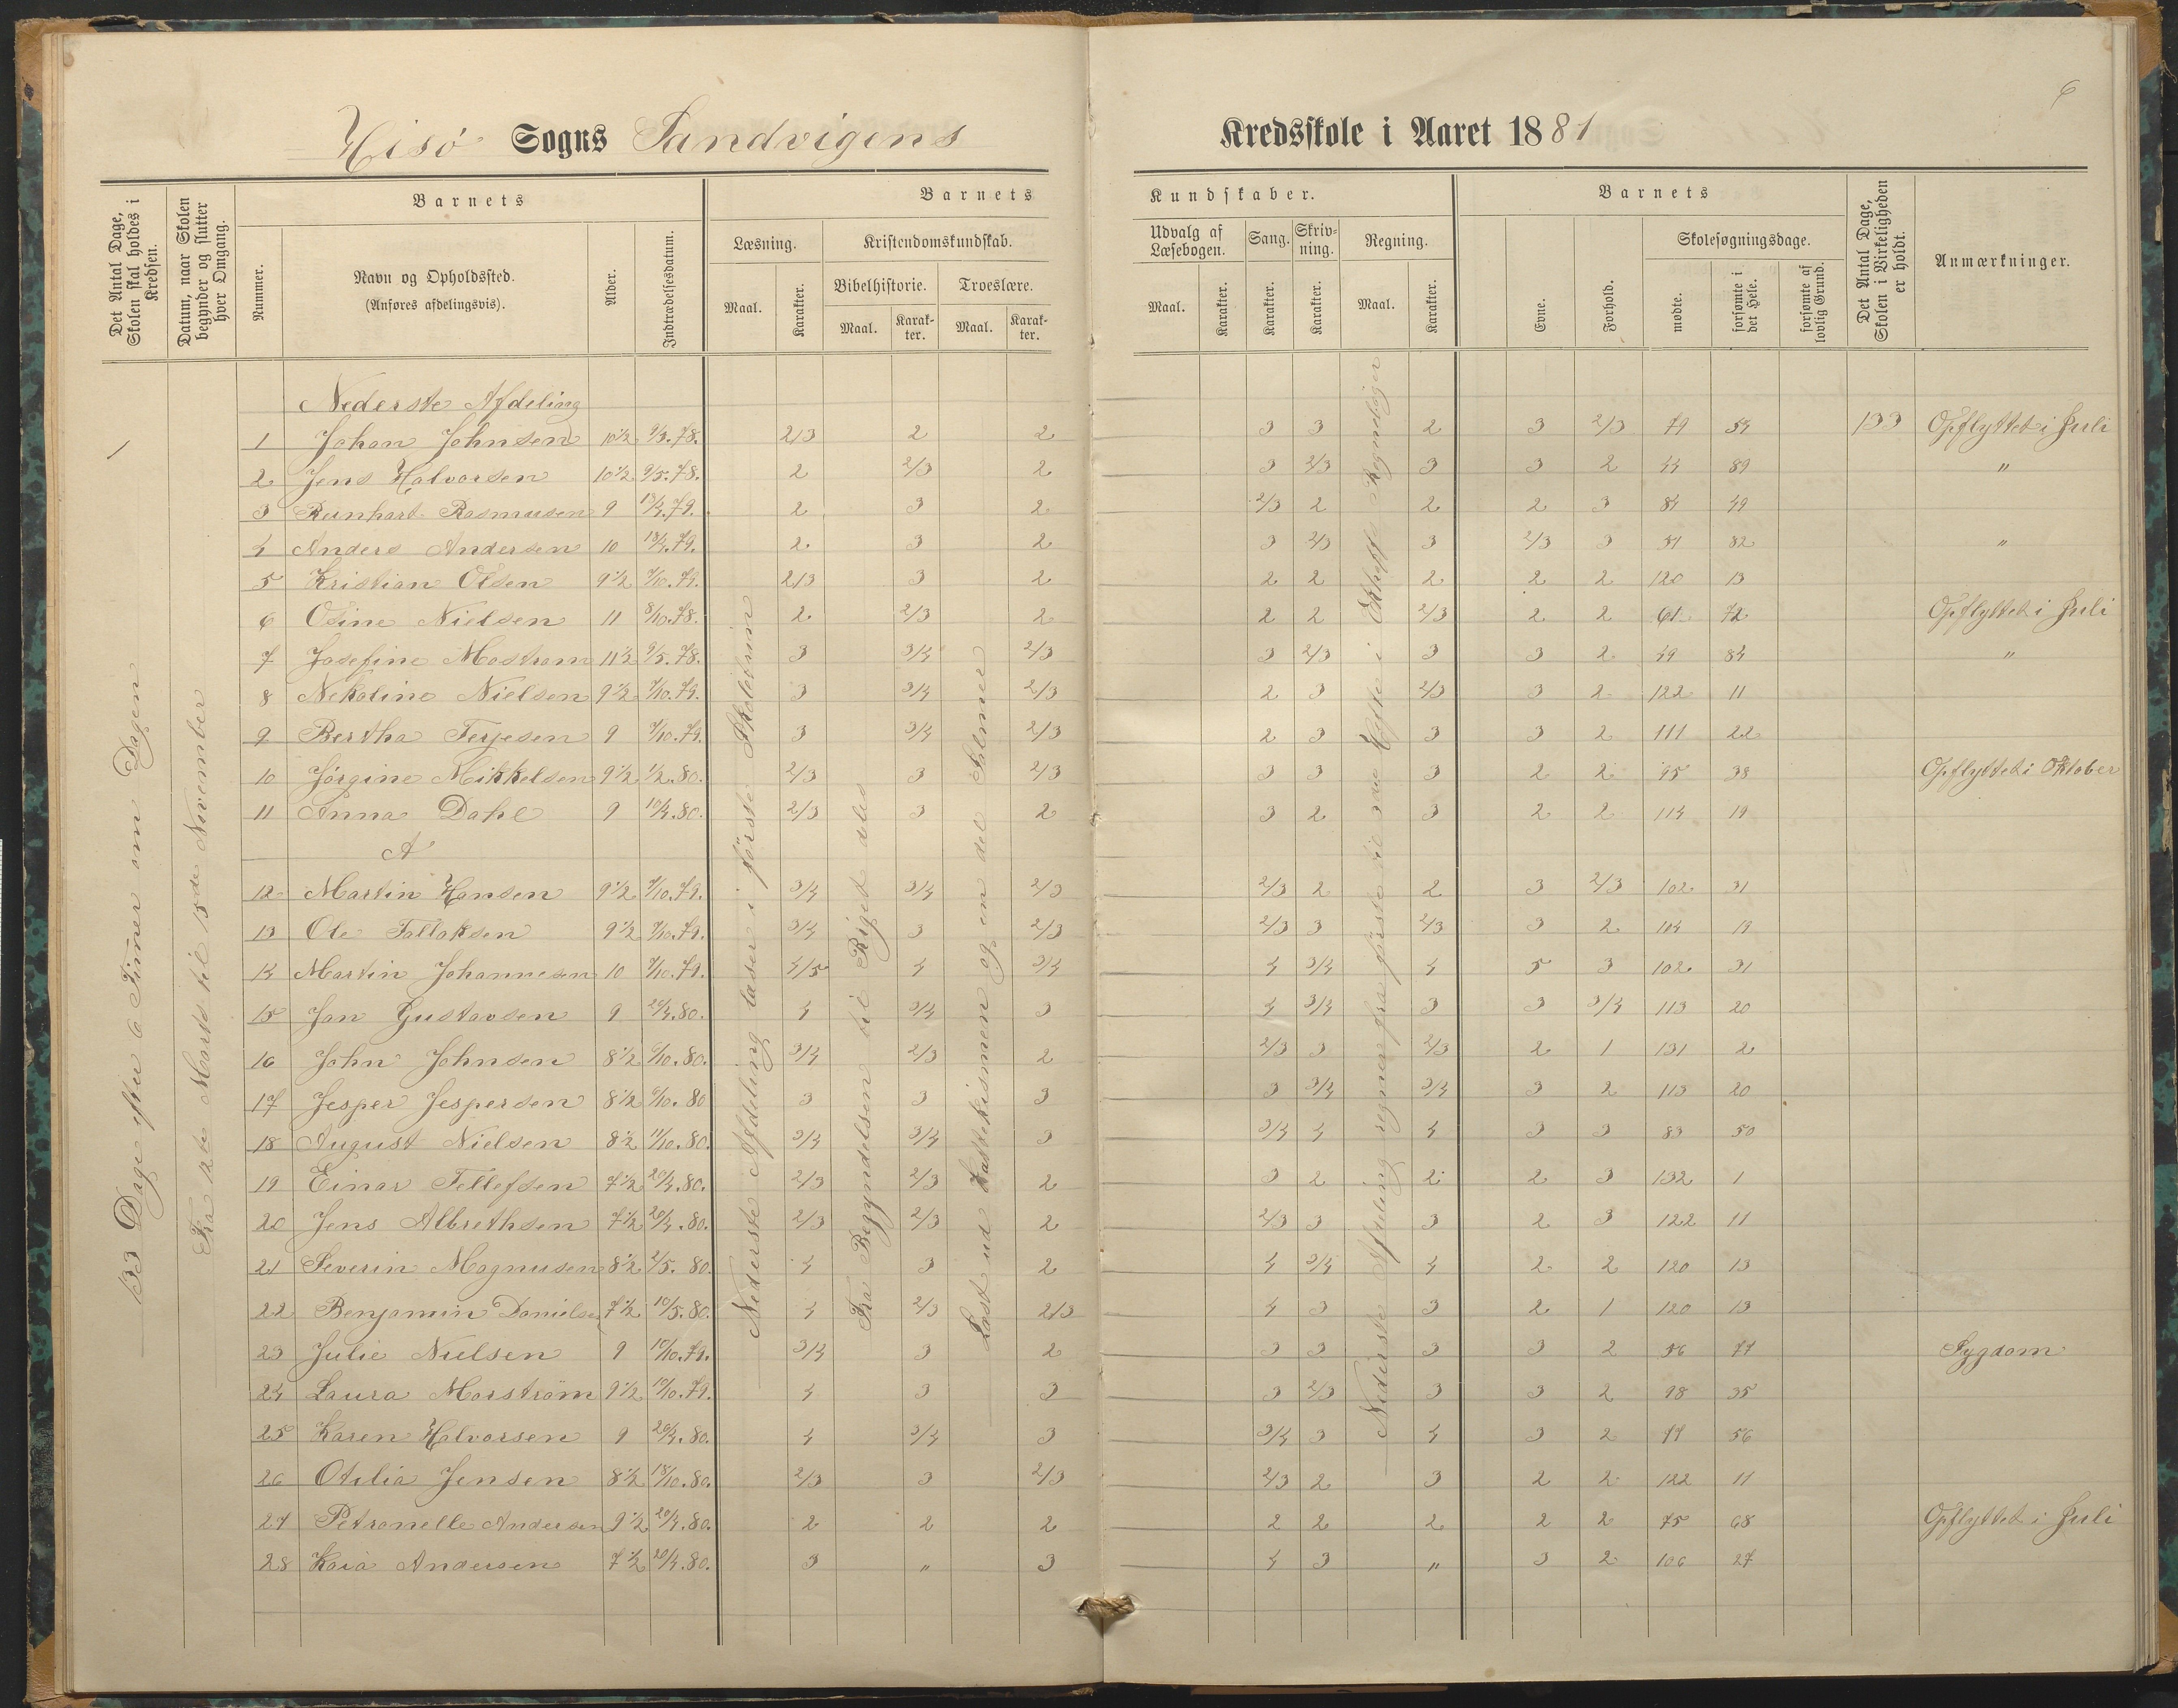 6
Hisö Sogns Sandvigens Kredsskole i Aaret 1881
Det Antal Dage, Skolen skal holdes i Kredsen.
Datum, naar Skolen begynder og slutter hver Omgang.
Nummer.
Barnets
Navn og Opholdssted.
(Anføres afdelingsvis).
Alder.
Indtrædelsesdatum.
Barnets Kundskaber.
Læsning.
Maal. Karakter.
Kristendomskundskab.
Bibelhistorie. Troeslære.
Maal. Karakter. Maal. Karakter.
Udvalg af Læsebogen.
Maal. Karakter.
Sang.
Karakter.
Skrivning.
Karakter.
Regning.
Maal. Karakter.
Barnets
Evne.
Forhold.
Skolesøgningsdage.
mødte.
forsømte i det Hele.
forsømte af lovlig Grund.
Det Antal Dage, Skolen i Virkeligheden er holdt.
Anmærkninger.
133 Dage efter 6 Timer om Dagen
Fra 12te Marts til 15de November
Nederste Afdeling læser i første Skoletrin
Fra Begyndelsen til Riget deles
Læst ud Kattekismen og en del Salmer
Nederste Afdeling regner fra første til Hefte i Regnebøger
Nederste Afdeling
1 Johan Johnsen 10½ 9/3.78. 2/3 2 2 3 3 2 3 2/3 79 54 133 Opflyttet i Juli
2 Jens Halvorsen 10½ 9/5.78. 2 2/3 2 3 2/3 3 3 2 44 89 "
3 Reinhart Rasmusen 9 13/4.79. 2 3 2 2/3 2 2 2 3 84 49
4 Anders Andersen 10 13/4.79. 2 3 2 3 2/3 3 2/3 3 51 82 "
5 Kristian Olsen 9½ 7/10.79. 2/3 3 2 2 2 2 2 2 120 13
6 Osine Nielsen 11 8/10.78. 2 2/3 2 2 2 2/3 2 2 61 72 Opflyttet i Juli
7 Josefine Mostrøm 11½ 9/5.78. 3 3/4 2/3 3 2/3 3 3 2 49 84 "
8 Nekoline Nielsen 9½ 7/10.79. 3 3/4 2/3 2 3 2/3 3 2 122 11
9 Bertha Terjesen 9 7/10.79. 3 3/4 2/3 2 3 3 3 2 111 22
10 Jørgine Mikkelsen 9½ 1/2.80. 2/3 3 2/3 3 3 3 2 2 95 38 Opflyttet i Oktober
11 Anna Dahl 9 10/4.80. 2/3 3 2 3 2 3 2 2 114 19
A
12 Martin Hansen 9½ 7/10.79. 3/4 3/4 2/3 2/3 2 2 3 2/3 102 31
13 Ole Tallaksen 9½ 7/10.79. 3/4 3 2/3 2/3 3 2/3 3 2 114 19
14 Martin Johannesen 10 7/10.79. 4/5 4 3/4 4 3/4 4 5 3 102 31
15 Jan Gustavsen 9 20/4.80. 4 3/4 3 4 3/4 3 3 3/4 113 20
16 John Johnsen 8½ 6/10.80. 3/4 2/3 2 2/3 3 2/3 2 1 131 2
17 Jesper Jespersen 8½ 6/10.80 3 3 3 3 3/4 3/4 3 2 113 20
18 August Nielsen 8½ 11/10.80. 3/4 3/4 3 3/4 4 4 3 3 83 50
19 Einar Tellefsen 7½ 20/4.80. 2/3 2/3 2 3 2 2 2 3 132 1
20 Jens Albrethsen 7½ 20/4.80. 2/3 2/3 2 2/3 3 3 2 3 122 11
21 Severin Magnusen 8½ 2/5.80. 4 3 2 4 3/4 4 2 2 120 13
22 Benjamin Danielsen 7½ 10/5.80. 4 2/3 2/3 4 3 3 2 1 120 13
23 Julie Nielsen 9 10/10.79. 3/4 3 2 3 3 3 3 2 56 77 Sygdom
24 Laura Morstrøm 9½ 10/10.79. 4 3 3 3 2/3 3 3 2 98 35
25 Karen Halvorsen 9 20/4.80. 4 3/4 3 3/4 3 4 3 2 77 56
26 Otilia Jensen 8½ 18/10.80. 2/3 3 2/3 2/3 2 3 2 2 122 11
27 Petronelle Andersen 9½ 20/4.80. 2 2 2 2 2 2 2 2 75 68 Opflyttet i Juli
28 Kaia Andersen 7½ 20/4.80. 3 " 3 4 3 " 3 2 106 27